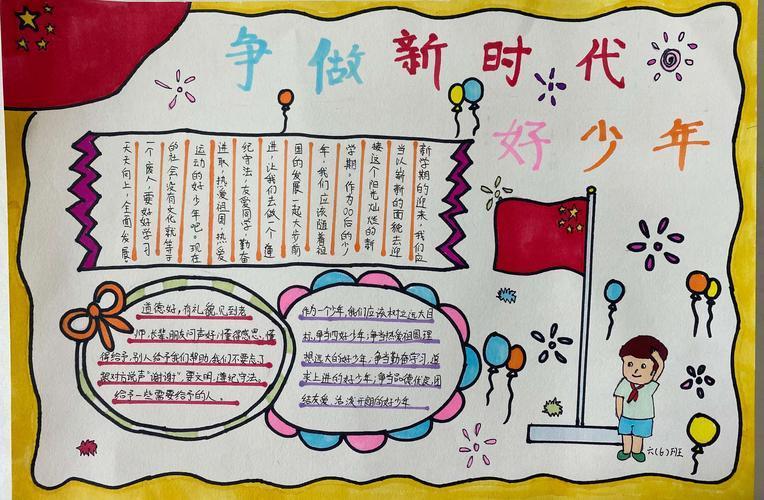 争做新时代
好少年
新学期的迎来，我们应
当以崭新的面貌去迎
接这个阳光灿烂的新
学期，作为00后的少
年，我们应该随着祖
国的发展一起大步前
进，让我们去做一个遵
纪守法，友爱同学，勤奋
进取，热爱祖国，热爱
运动的好少年吧。现在
的社会没有文化就等于
一个废人，要好好学习
天天向上，全面发展。
道德好，有礼貌，见到老
师、长辈、朋友问声好；懂得感恩，懂
得给予，别人给予我们帮助，我们不要忘了
跟对方说声“谢谢”，要文明，遵纪守法。
给予一些需要给予的人。
作为一个少年，我们应该树立远大目
标，争当四好少年；争当热爱祖国、理
想远大的好少年，争当勤奋学习、追
求上进的好少年；争当品德优良、团
结友爱、活泼开朗的好少年
六(6)班